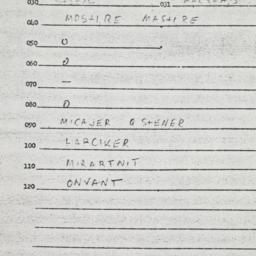 030 031
040 MOSHIRE MASHIRE
050 0
060 0
070 –
080 0
090 MICAJER O STENER
100 LARCIKER
110 MIRARTNIT
120 ONVANT